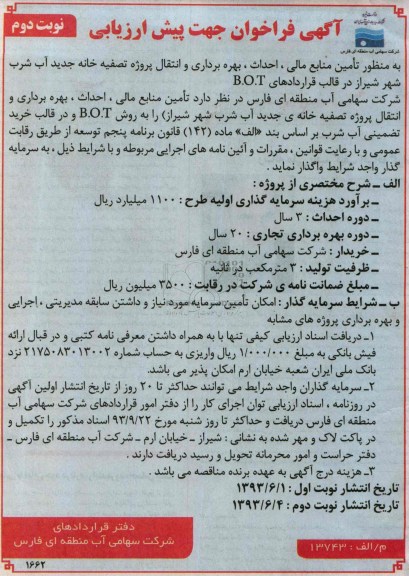 نوبت دوم
آگهی فراخوان جهت پیش ارزیابی
شرکت سهامی آب منطقه ای فارس
به منظور تأمین منابع مالی ، احداث ، بهره برداری و انتقال پروژه تصفیه خانه جدید آب شرب
شهر شیراز در قالب قراردادهای B.O.T
شرکت سهامی آب منطقه ای فارس در نظر دارد تأمین منابع مالی ، احداث ، بهره برداری و
انتقال پروژه تصفیه خانه ی جدید آب شرب شهر شیراز) را به روش B.O.T و در قالب خرید
تضمینی آب شرب بر اساس بند «الف» ماده (۱۴۲) قانون برنامه پنجم توسعه از طریق رقابت
عمومی و با رعایت قوانین ، مقررات و آئین نامه های اجرایی مربوطه و با شرایط ذیل ، به سرمایه
گذار واجد شرایط واگذار نماید .
الف ــ شرح مختصری از پروژه :
ــ برآورد هزینه سرمایه گذاری اولیه طرح : ۱۱۰۰ میلیارد ریال
ــ دوره احداث : ۳ سال
ــ دوره بهره برداری تجاری : ۲۰ سال
ــ خریدار : شرکت سهامی آب منطقه ای فارس
ــ ظرفیت تولید : ۳ مترمکعب در ثانیه
ــ مبلغ ضمانت نامه ی شرکت در رقابت : ۳۵۰۰ میلیون ریال
ب ــ شرایط سرمایه گذار : امکان تأمین سرمایه مورد نیاز و داشتن سابقه مدیریتی ، اجرایی
و بهره برداری پروژه های مشابه
۱ــ دریافت اسناد ارزیابی کیفی تنها با به همراه داشتن معرفی نامه کتبی و در قبال ارائه
فیش بانکی به مبلغ ۱/۰۰۰/۰۰۰ ریال واریزی به حساب شماره ۲۱۷۵۰۸۳۰۱۳۰۰۲ نزد
بانک ملی ایران شعبه خیابان ارم امکان پذیر می باشد.
۲ــ سرمایه گذاران واجد شرایط می توانند حداکثر تا ۲۰ روز از تاریخ انتشار اولین آگهی
در روزنامه ، اسناد ارزیابی توان اجرای کار را از دفتر امور قراردادهای شرکت سهامی آب
منطقه ای فارس دریافت و حداکثر تا روز شنبه مورخ ۹۳/۹/۲۲ اسناد مذکور را تکمیل و
در پاکت لاک و مهر شده به نشانی : شیراز ــ خیابان ارم ــ شرکت آب منطقه ای فارس ــ
دفتر حراست و امور محرمانه تحویل و رسید دریافت دارند .
۳ــ هزینه درج آگهی به عهده برنده مناقصه می باشد .
تاریخ انتشار نوبت اول : ۱۳۹۳/۶/۱
تاریخ انتشار نوبت دوم : ۱۳۹۳/۶/۴
دفتر قراردادهای
شرکت سهامی آب منطقه ای فارس
م/الف : ۱۳۷۴۳
۱۶۶۲